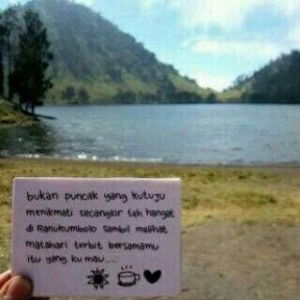 bukan puncak yang kutuju
menikmati secangkir teh hangat
di Ranukumbolo sambil melihat
matahari terbit bersamamu
itu yang ku mau....